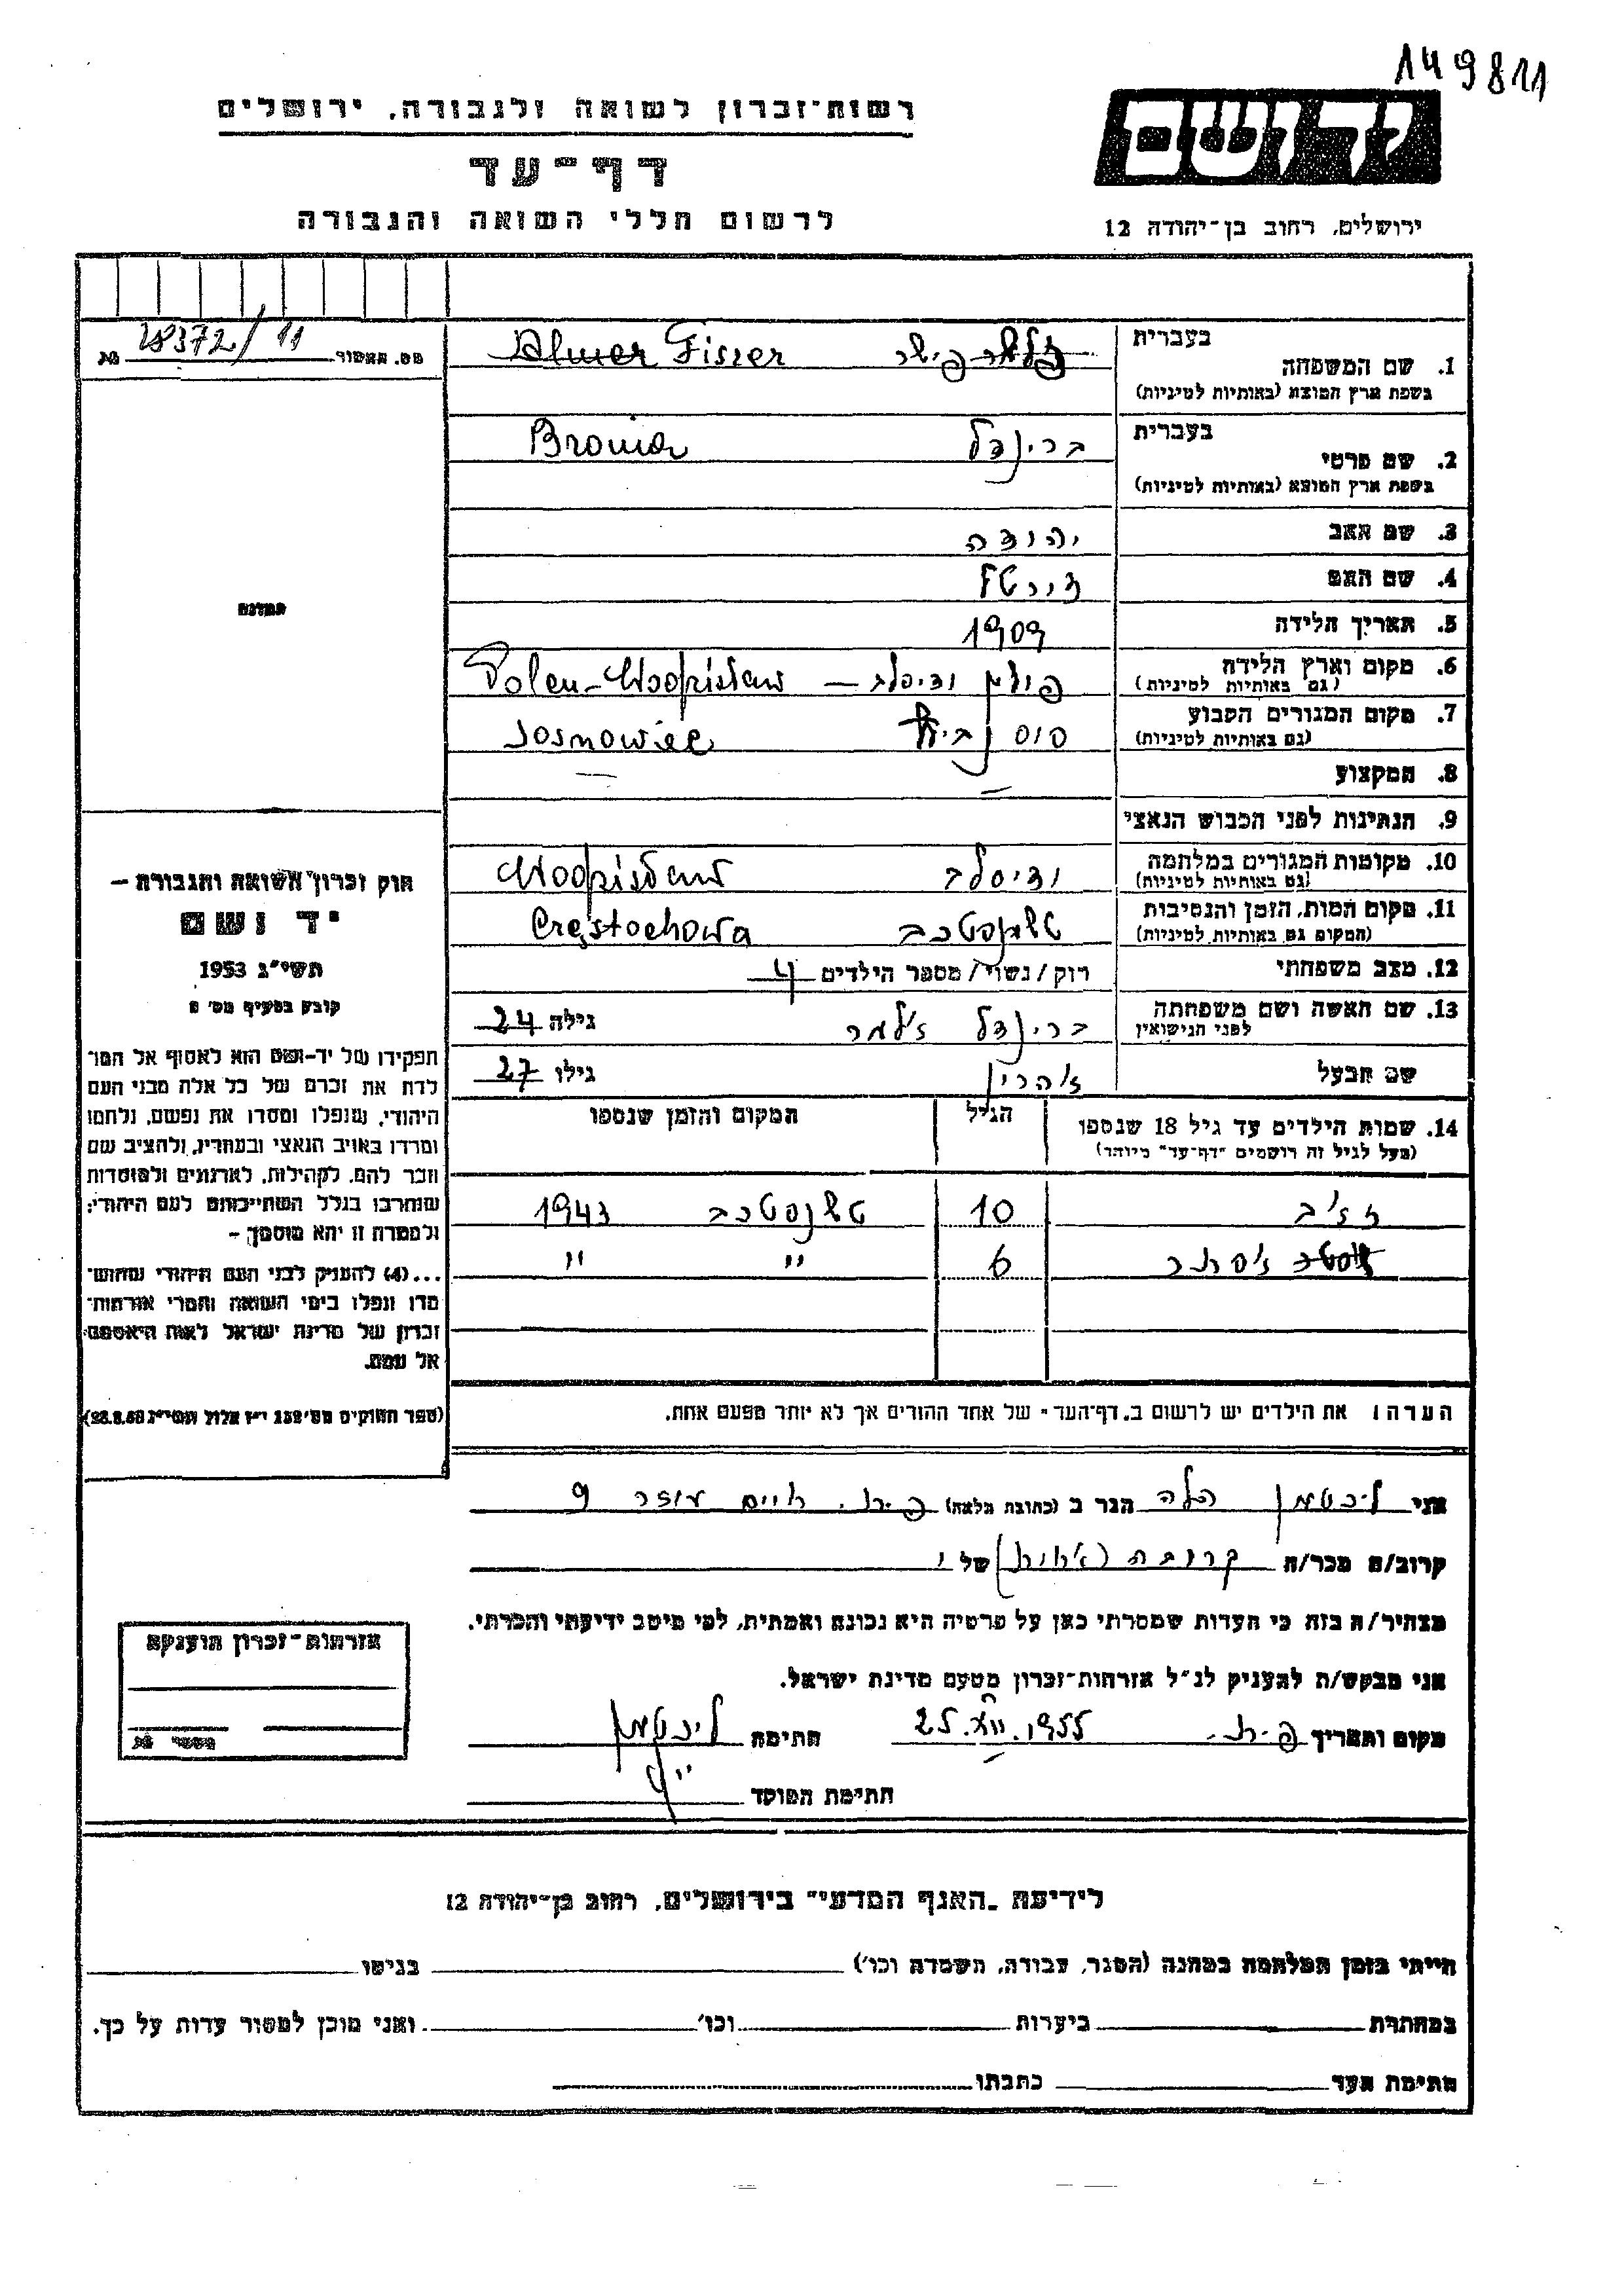 149811
רשות־זכרון לשואה ולגבורה, ירושלים
יד ושם
דף־עד
לרשום חללי השואה והגבורה
ירושלים, רחוב בן־יהודה 12
מס. האשור 28372/11 מת
בעברית
1. שם המשפחה פישר Fiszer
בשפת ארץ המוצא (באותיות לטיניות)
בעברית
2. שם פרטי בריינדל Bronia
בשפת ארץ המוצא (באותיות לטיניות)
3. שם האב יהודה
4. שם האם
5. תאריך הלידה 1909
6. מקום וארץ הלידה פולין – Polen-
(גם באותיות לטיניות)
7. מקום המגורים הקבוע Sosnowiec
(גם באותיות לטיניות)
8. המקצוע –
9. הנתינות לפני הכבוש הנאצי
10. מקומות המגורים במלחמה
(גם באותיות לטיניות)
11. מקום המות, הזמן והנסיבות טשנסטכב Częstochowa
(המקום גם באותיות לטיניות)
12. מצב משפחתי רווק/נשוי/מספר הילדים 4
13. שם האשה ושם משפחתה ברינדל גילה 24
לפני הנישואין
שם הבעל אהרון גילו 27
14. שמות הילדים עד גיל 18 שנספו הגיל המקום והזמן שנספו
(מעל לגיל זה רושמים "דף־עד" מיוחד)
10 טשנסטכב 1943
אסתר 6 " "
הערה: את הילדים יש לרשום ב„דף־העד" של אחד ההורים אך לא יותר מפעם אחת.
התמונה
חוק זכרון השואה והגבורה –
יד ושם
תשי"ג 1953
קובע בסעיף מס' 2
תפקידו של יד־ושם הוא לאסוף אל המו־
לדת את זכרם של כל אלה מבני העם
היהודי, שנפלו ומסרו את נפשם, נלחמו
ומרדו באויב הנאצי ובעוזריו, ולהציב שם
וזכר להם, לקהילות, לארגונים ולמוסדות
שנחרבו בגלל השתייכותם לעם היהודי;
ולמטרה זו יהא מוסמך –
...(4) להעניק לבני העם היהודי שהוש־
מדו ונפלו בימי השואה והמרי אזרחות־
זכרון של מדינת ישראל לאות היאספם
אל עמם.
(ספר החוקים מס' 132 י"ז אלול תשי"ג 28.8.53)
אני ליכטמן הלה הגר ב (כתובת מלאה) פ.ת. חיים עוזר 9
קרוב/ה מכר/ה קרובה (אחות) של י
מצהיר/ה בזה כי העדות שמסרתי כאן על פרטיה היא נכונה ואמתית, לפי מיטב ידיעתי והכרתי.
אני מבקש/ת להעניק לנ"ל אזרחות־זכרון מטעם מדינת ישראל.
מקום ותאריך פ.ת. 25.XII.1955 חתימה ליכטמן
חתימת המוסד
אזרחות־זכרון הוענקה
מספר מת
לידיעת „האגף המדעי" בירושלים, רחוב בן־יהודה 12
הייתי בזמן המלחמה במחנה (הסגר, עבודה, השמדה וכו') בגיטו
במחתרת ביערות וכו' ואני מוכן למסור עדות על כך.
חתימת העד כתבתו